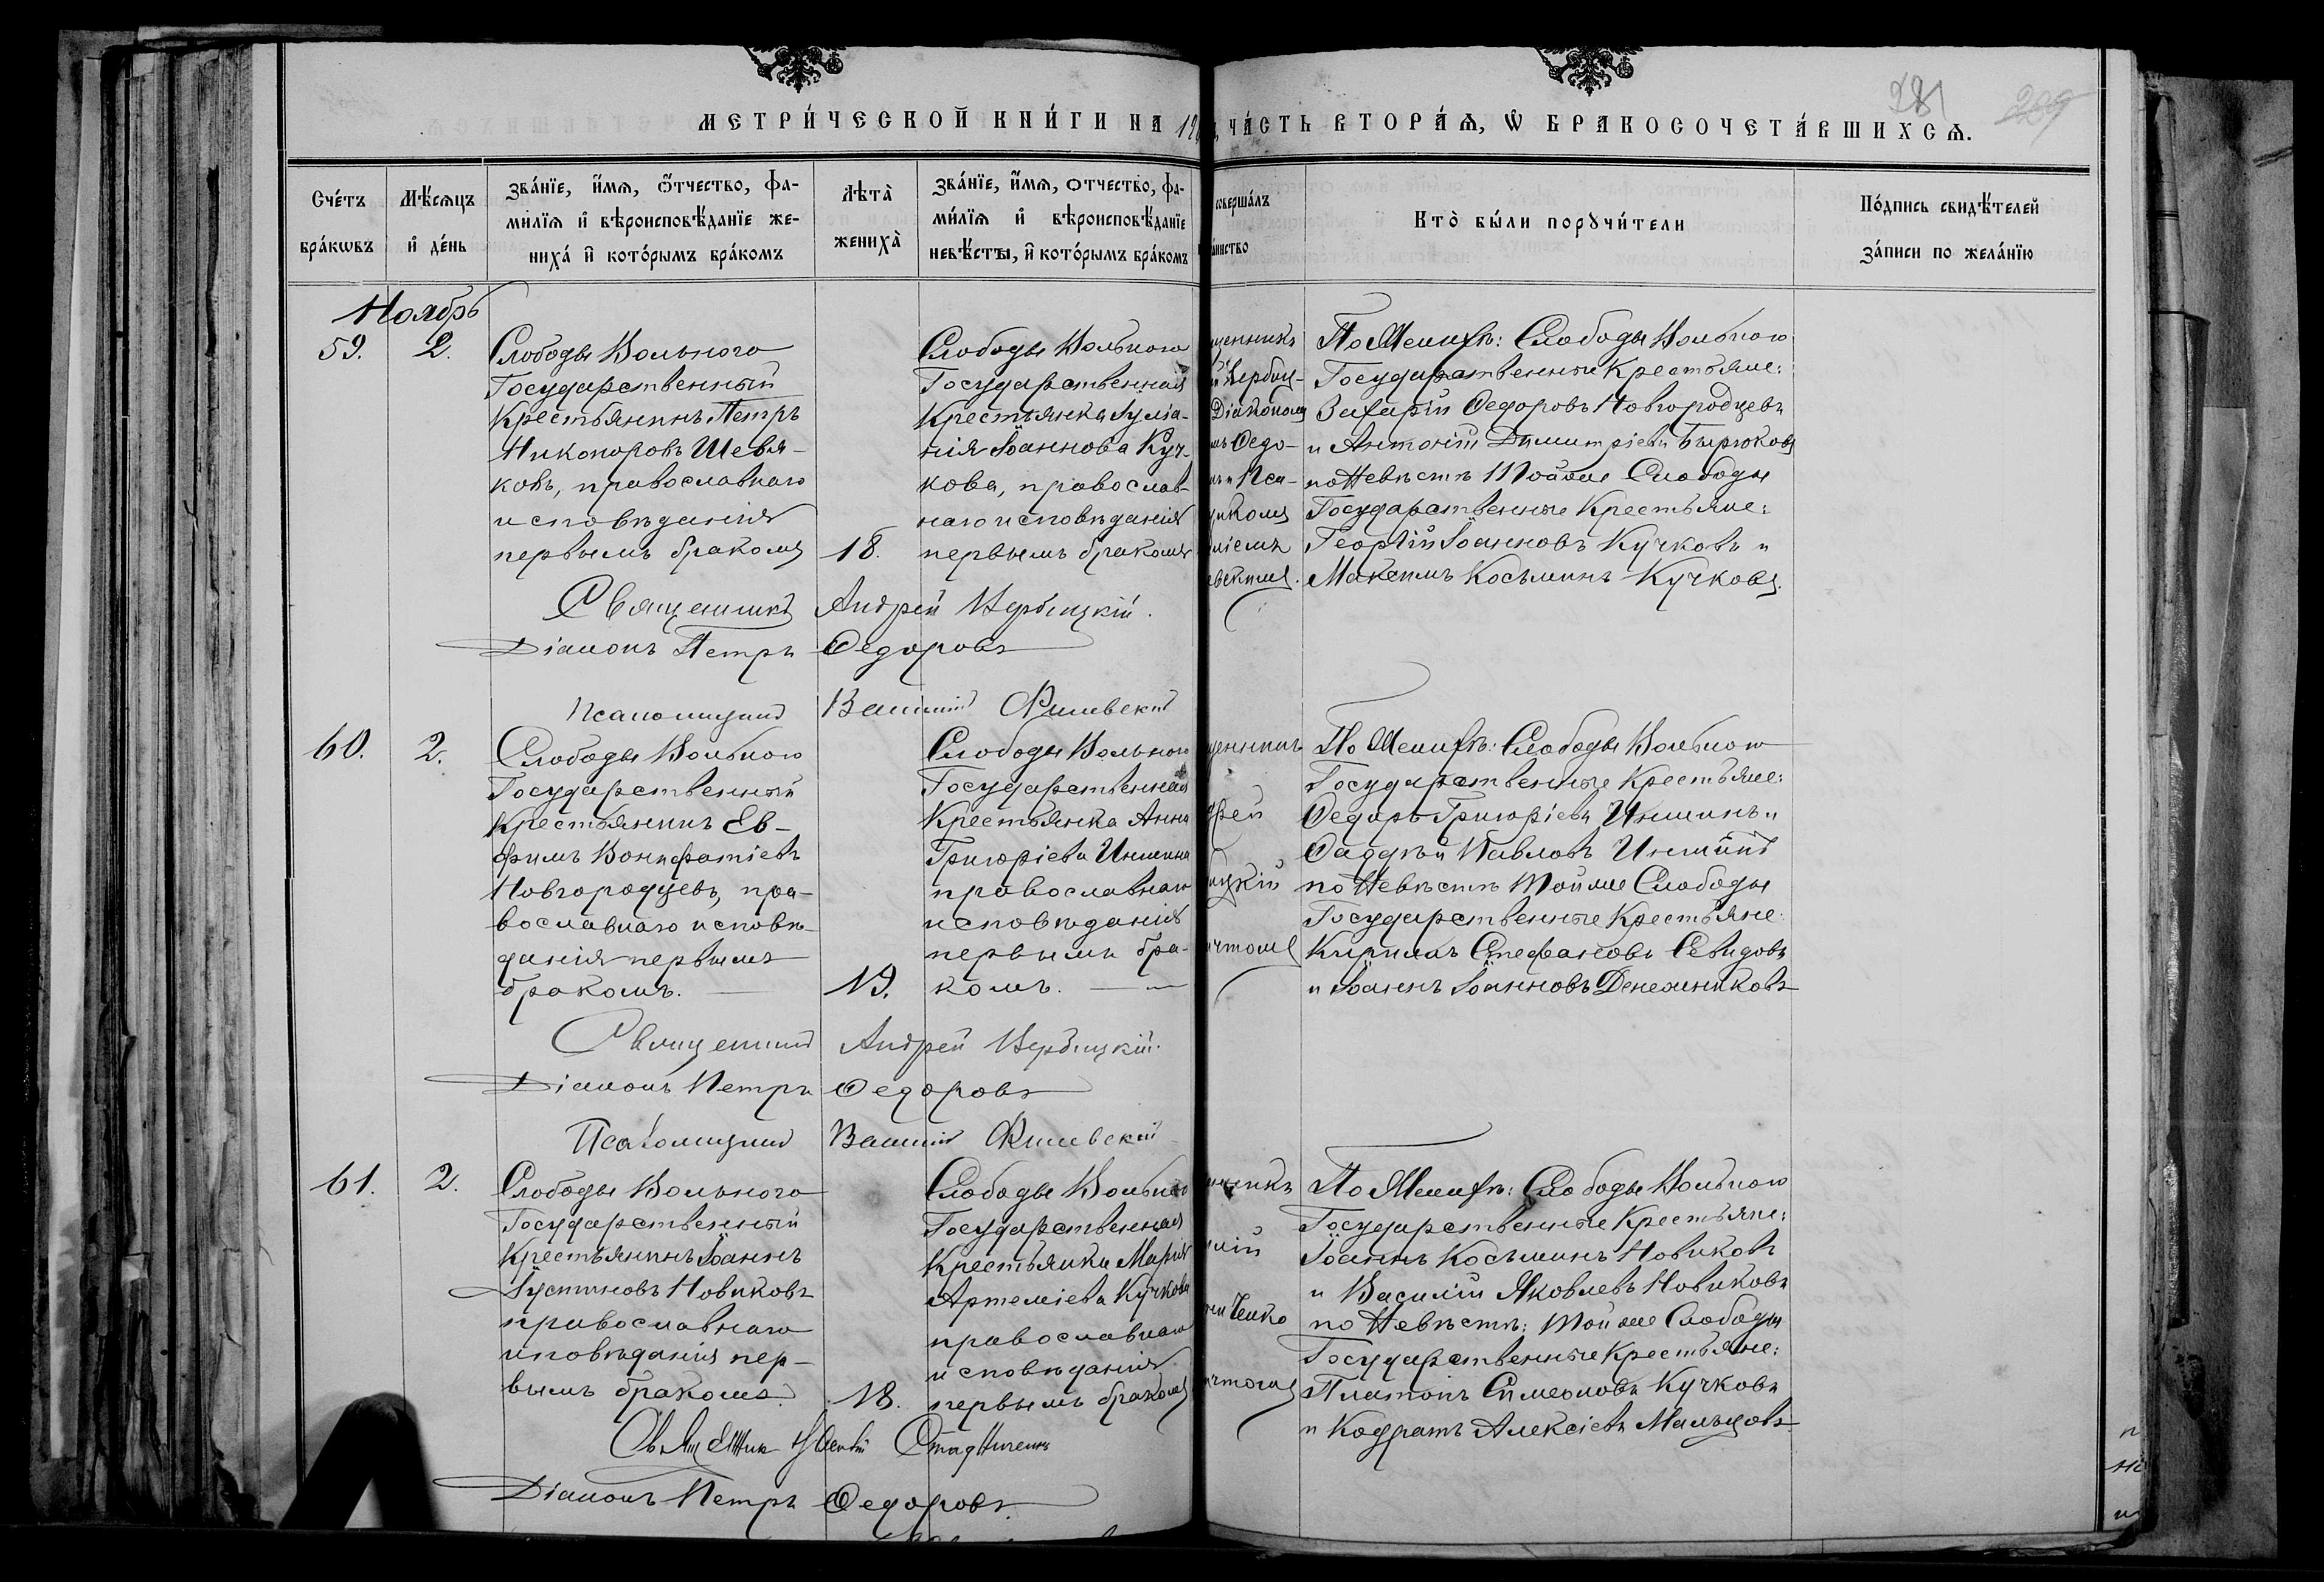 281 209
МЕТРИ́ЧЕСКОЙ КНИ́ГИ НА ЧА́СТЬ ВТОРА́Ѧ, Ѡ БРАКОСОЧЕТА́ВШИХСѦ.
Сче́тъ бра́кѡвъ
Мѣ́сѧцъ и҆ де́нь
Зва́нїе, и҆́мѧ, ѻ҆́тчество, фа-
ми́лїѧ и҆ вѣроисповѣ́данїе же-
ниха́ и҆ кото́рымъ бра́комъ
Лѣта̀
жениха̀
Зва́нїе, и҆́мѧ, отчество, фа-
ми́лїѧ и҆ вѣроисповѣ́данїе
невѣ́сты, и҆ кото́рымъ бра́комъ
соверша́лъ
Кто̀ бы́ли порꙋчи́тели
По́дпись свидѣ́телей
за́писи по жела́нїю
Ноябрь
59. 2.
Слободы Вольного
Государственный
Крестьянинъ Петръ
Никоноровъ Шевля-
ковъ, православнаго
исповѣданія
первымъ бракомъ
18.
Слободы Вольного
Государственная
Крестьянка Іуліа-
нія Іоаннова Куч-
кова, православ-
наго исповѣданія
первымъ бракомъ
Діакономъ
По Женихѣ: Слободы Вольного
Государственные Крестьяне:
Захарій Федоровъ Новгородцевъ
и Антоній Димитріевъ Бирюковъ
по Невѣстѣ Тойже Слободы
Государственные Крестьяне:
Георгій Іоанновъ Кучковъ и
Максимъ Косьминъ Кучковъ.
Священникъ Андрей Вербицкій.
Діаконъ Петръ Федоровъ
Псаломщикъ Василій
60. 2.
Слободы Вольного
Государственный
Крестьянинъ Ев-
фимъ Вонифатіевъ
Новгородцевъ, пра-
вославнаго исповѣ-
данія первымъ
бракомъ.
19.
Слободы Вольного
Государственная
Крестьянка Анна
Григоріева Иншина
православнаго
исповѣданія
первымъ бра-
комъ.
По Женихѣ: Слободы Вольного
Государственные Крестьяне:
Федоръ Григоріевъ Иншинъ и
Фаддѣй Павловъ Иншинъ
по Невѣстѣ Тойже Слободы
Государственные Крестьяне
Кириллъ Стефановъ Севидовъ
и Іоаннъ Іоанновъ Денежниковъ
Священникъ Андрей Вербицкій.
Діаконъ Петръ Федоровъ
Псаломщикъ Василій
61. 2.
Слободы Вольного
Государственный
Крестьянинъ Іоаннъ
Іустиновъ Новиковъ
православнаго
исповѣданія пер-
вымъ бракомъ.
18.
Слободы Вольного
Государственная
Крестьянка Марія
Артеміева Кучкова
православнаго
исповѣданія
первымъ бракомъ
По Женихѣ: Слободы Вольного
Государственные Крестьяне:
Іоаннъ Косьминъ Новиковъ
и Василій Яковлевъ Новиковъ
по Невѣстѣ: Тойже Слободы
Государственные Крестьяне:
Платонъ Симеоновъ Кучковъ
и Кодратъ Алексіевъ Мальцовъ
Священникъ
Діаконъ Петръ Федоровъ.